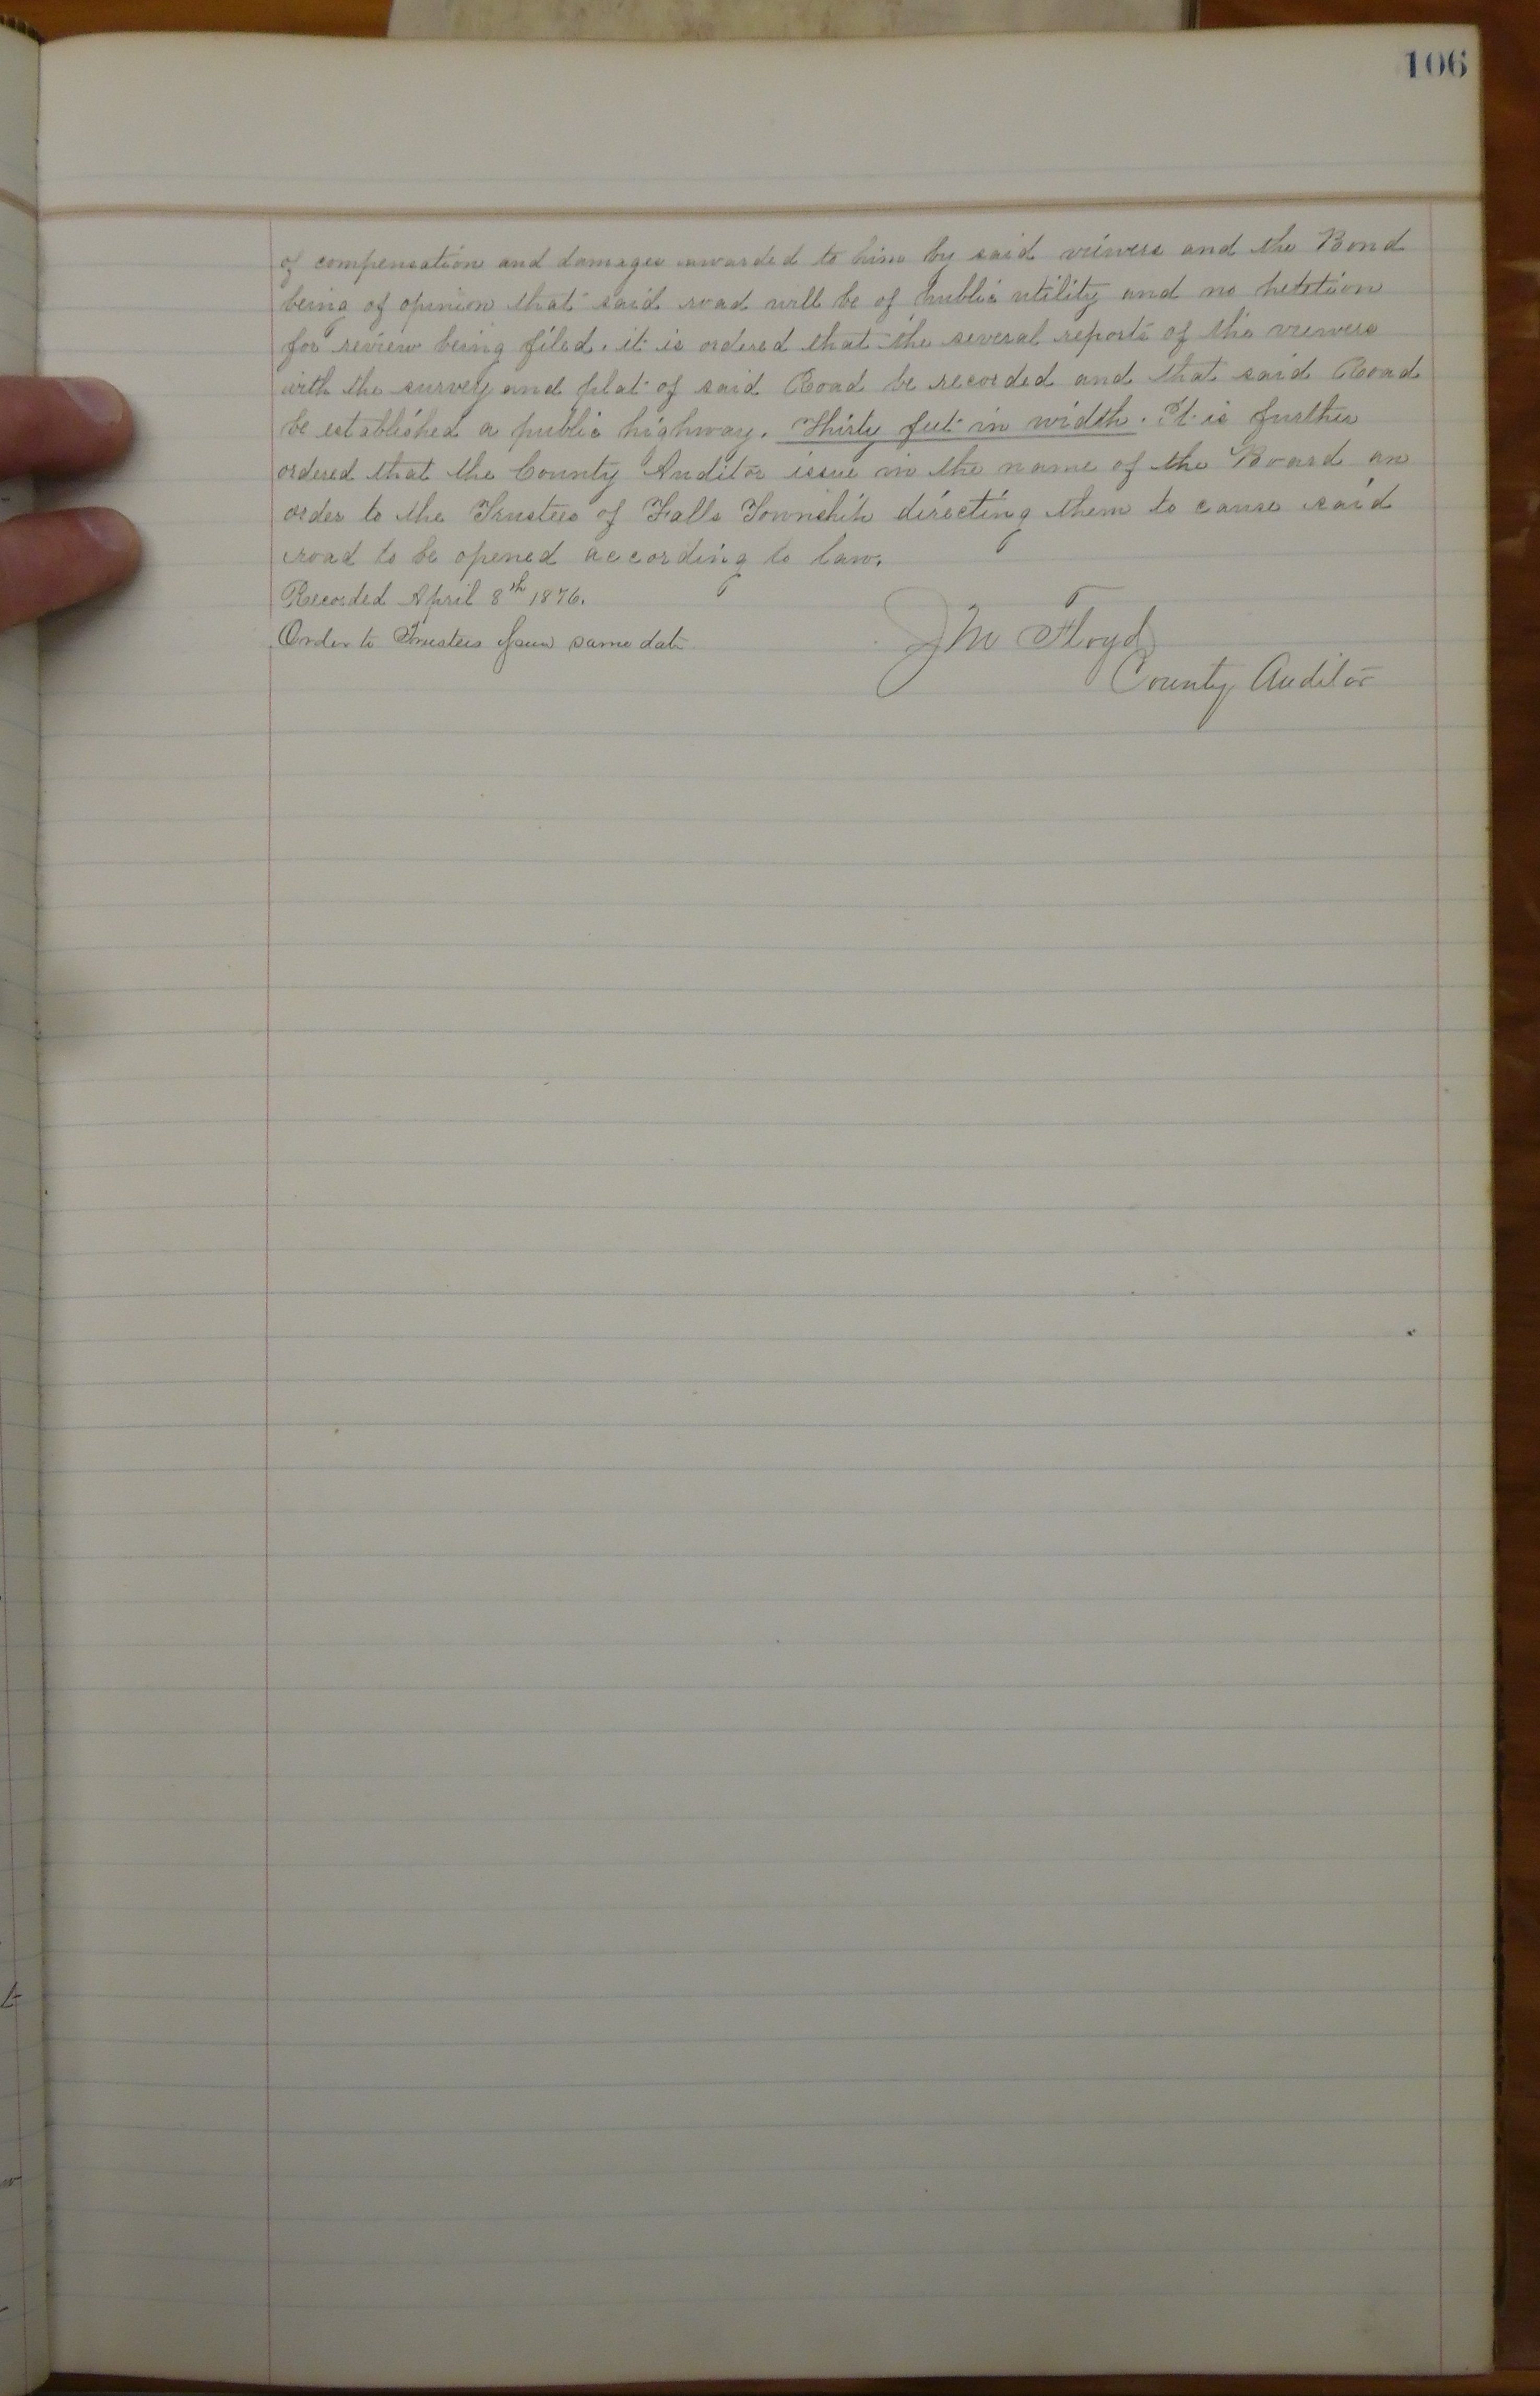 106
of compensation and damages awarded to him by said viewers and the Bond
being of opinion that said road will be of public utility and no petition
for review being filed. it is ordered that the several reports of the viewers
with the survey and plat of said Road be recorded and that said Road
be established a public highway. Thirty feet in width. It is further
ordered that the County Auditor issue in the name of the Board an
order to the Trustees of Falls Township directing them to cause said
road to be opened according to law.
Recorded April 8th 1876.
Order to Trustees same date
J M Floyd
County Auditor